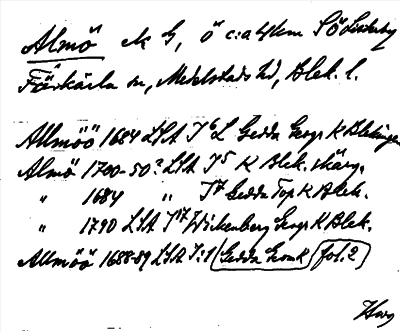 Almö ek G, ö c:a 4 km SÖ Listerby
Förkärla sn, Medelstads hd, Blek. l.
Allmöö 1684 LSA I 6 L Gedda Geogr K Blekingen
Almö 1700-50? LSA I 5 K Blek. skärg.
" 1684 " I 7 Gedda Top K Blek.
" 1790 LSA I 17 Wickenberg Geogr K Blek.
Allmöö 1688-89 LSA I:1 (Gedda Grönk fol. 2)